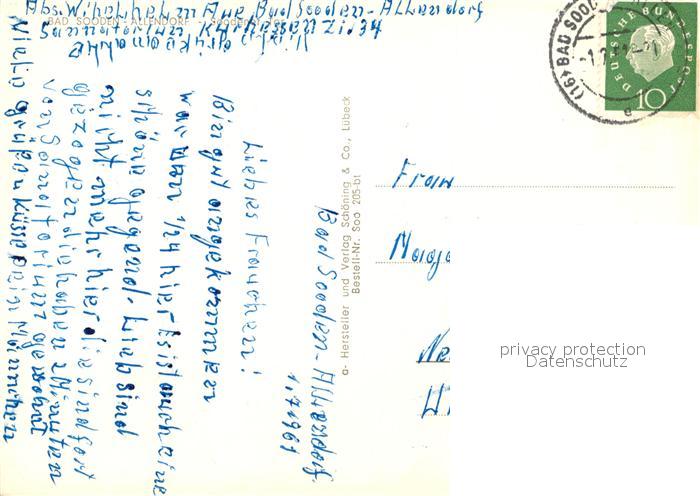 Abs. Wilh. Hahn Aue Bad Sooden-Allendorf
BAD SOODEN-ALLENDORF - Soodener Tor
Sanatorium Kurhessen Zi. 34
Viele Grüße an alle
Bad Sooden-Allendorf.
1.7.1961
Liebes Frauchen!
Bin gut angekommen
war um 1/4 hier Es ist auch eine
schöne gegend. Lieb sind
nicht mehr hier die sind fort
gezogen die haben 2 Minuten
vom Sanatorium gewohnt
Viele grüße u küsse Dein Männchen
a- Hersteller und Verlag Schöning & Co., Lübeck
Bestell-Nr. Soo 205-bt
(16) BAD SOODEN
-1.7.61
a
DEUTSCHE BUNDESPOST
10
Frau
Magd
Ne
privacy protection
Datenschutz